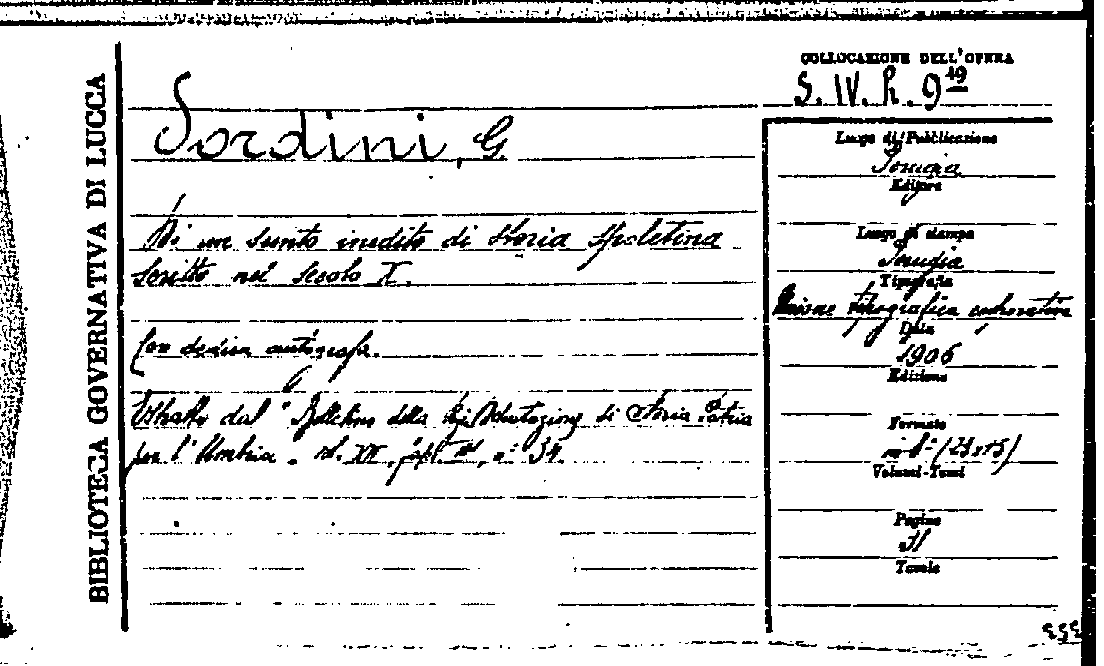 BIBLIOTECA GOVERNATIVA DI LUCCA
COLLOCAZIONE DELL'OPERA
S. IV. R. 9 19
Sordini, G.
Di un sunto inedito di storia spoletina
scritto nel secolo X.
Con dedica autografa.
Estratto dal "Bollettino della R. Deputazione di Storia Patria
per l'Umbria. vol. XII, n° 34.
Luogo di Pubblicazione
Perugia
Editore
Luogo di stampa
Perugia
Tipografia
Unione tipografica cooperativa
Data
1906
Edizione
Formato
in 8° (25x15)
Volumi-Tomi
Pagine
31
Tavole